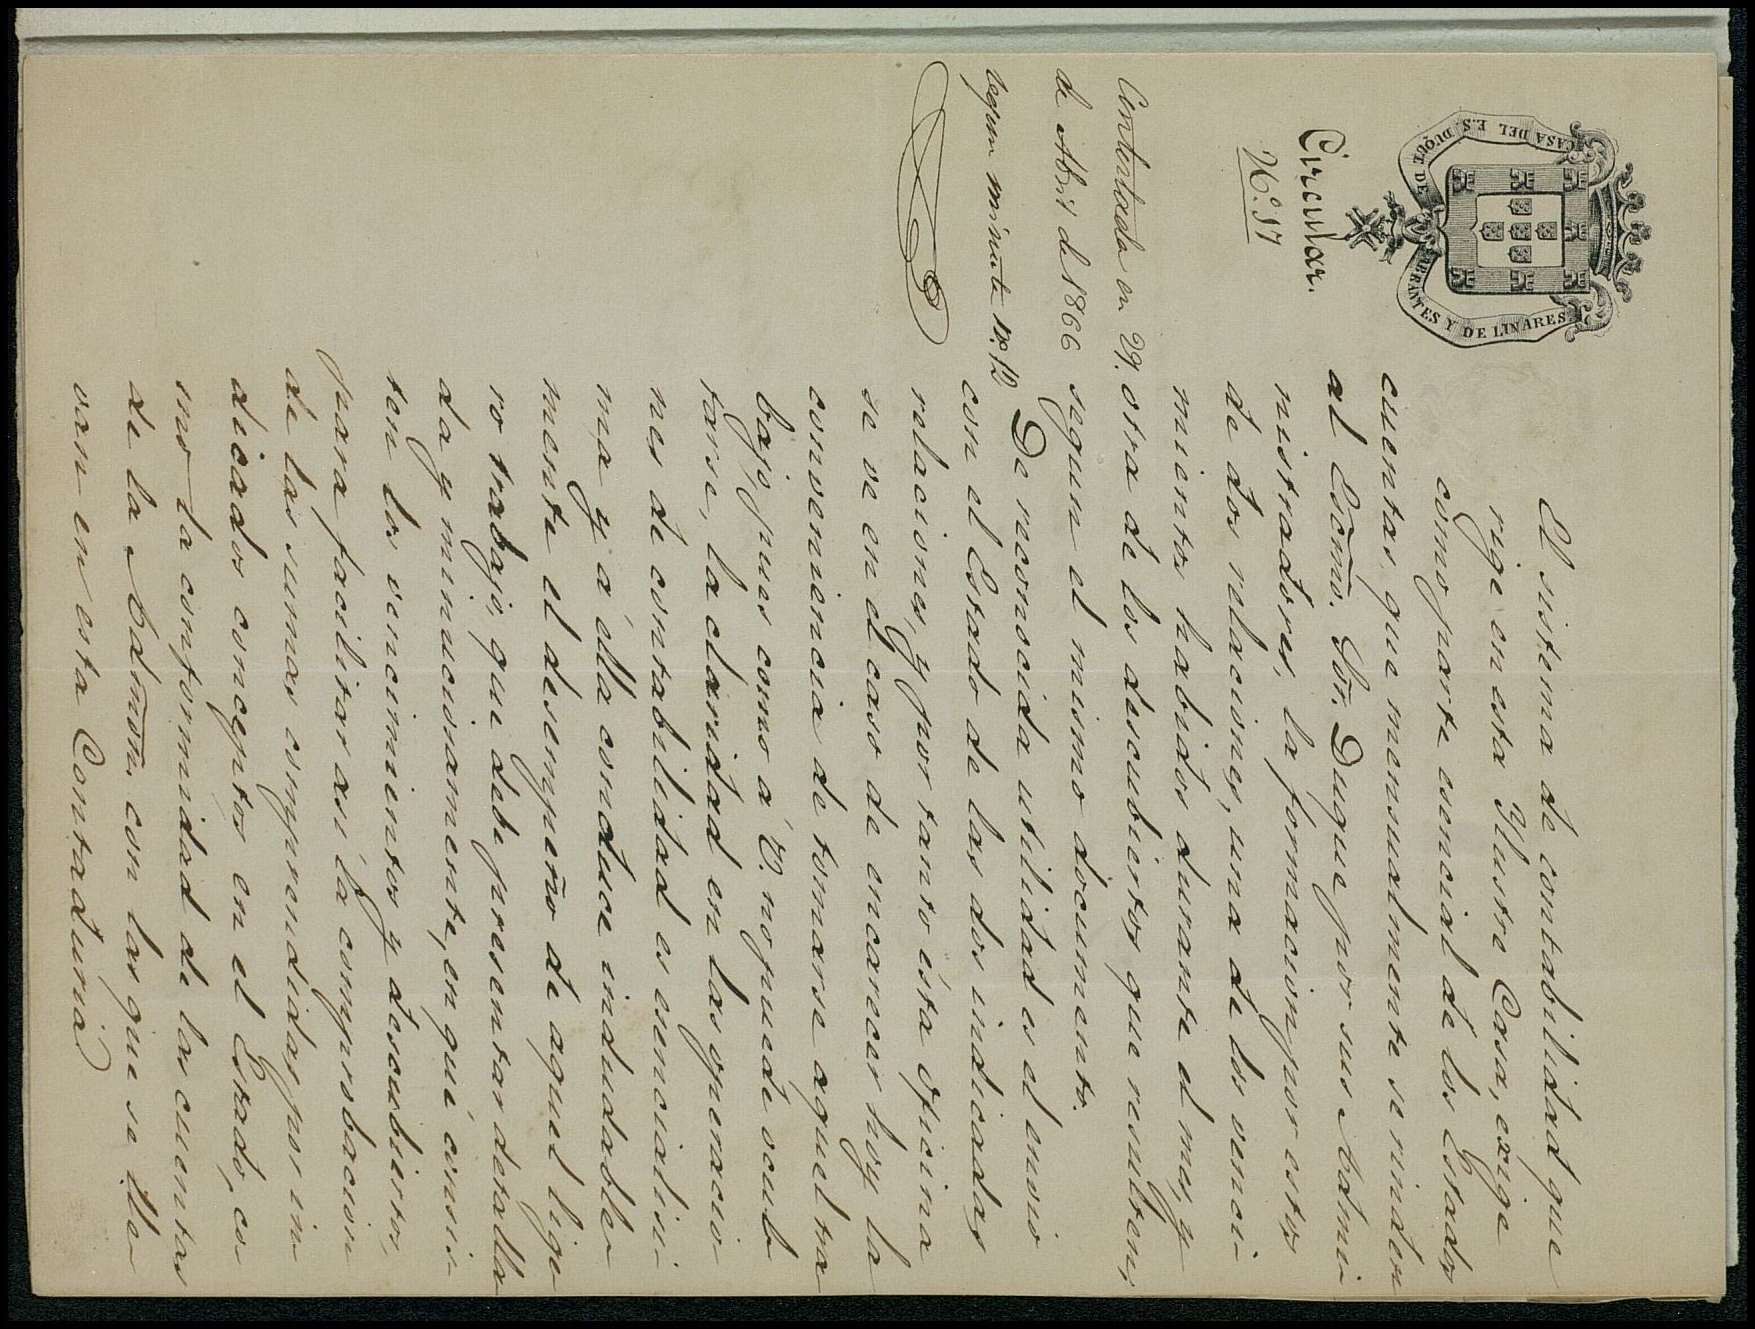 CASA DEL E.S. DUQUE DE ABRANTES Y DE LINARES
Circular.
Nº. 17
Contestada en 29.
de Abril de 1866
segun minuta nº. 12
El sistema de contabilidad que
rige en esta Ylustre Casa, exige
como parte esencial de los Estados
cuentas, que mensualmente se rinden
al Escmo. Sor. Duque por sus Admi
nistradores, la formacion por estos
de dos relaciones, una de los venci-
mientos habidos durante el mes, y
otra de los descubiertos que resulten,
segun el mismo documento.
De reconocida utilidad es el envio
con el Estado de las dos indicadas
relaciones, y por tanto ésta Oficina
se ve en el caso de encarecer hoy la
conveniencia de tomarse aquel tra
bajo, pues como á V. no puede ocul
tarse, la claridad en las operacio-
nes de contabilidad es esencialisi-
ma y á élla conduce indudable-
mente el desempeño de aquel lige-
ro trabajo, que debe presentar detalla
da y minuciosamente, en qué consis-
ten los vencimientos y descubiertos,
para facilitar asi la comprobacion
de las sumas comprendidas por in
dicados conceptos en el Estado, co
mo la conformidad de las cuentas
de la Admon. con las que se lle
van en esta Contaduría